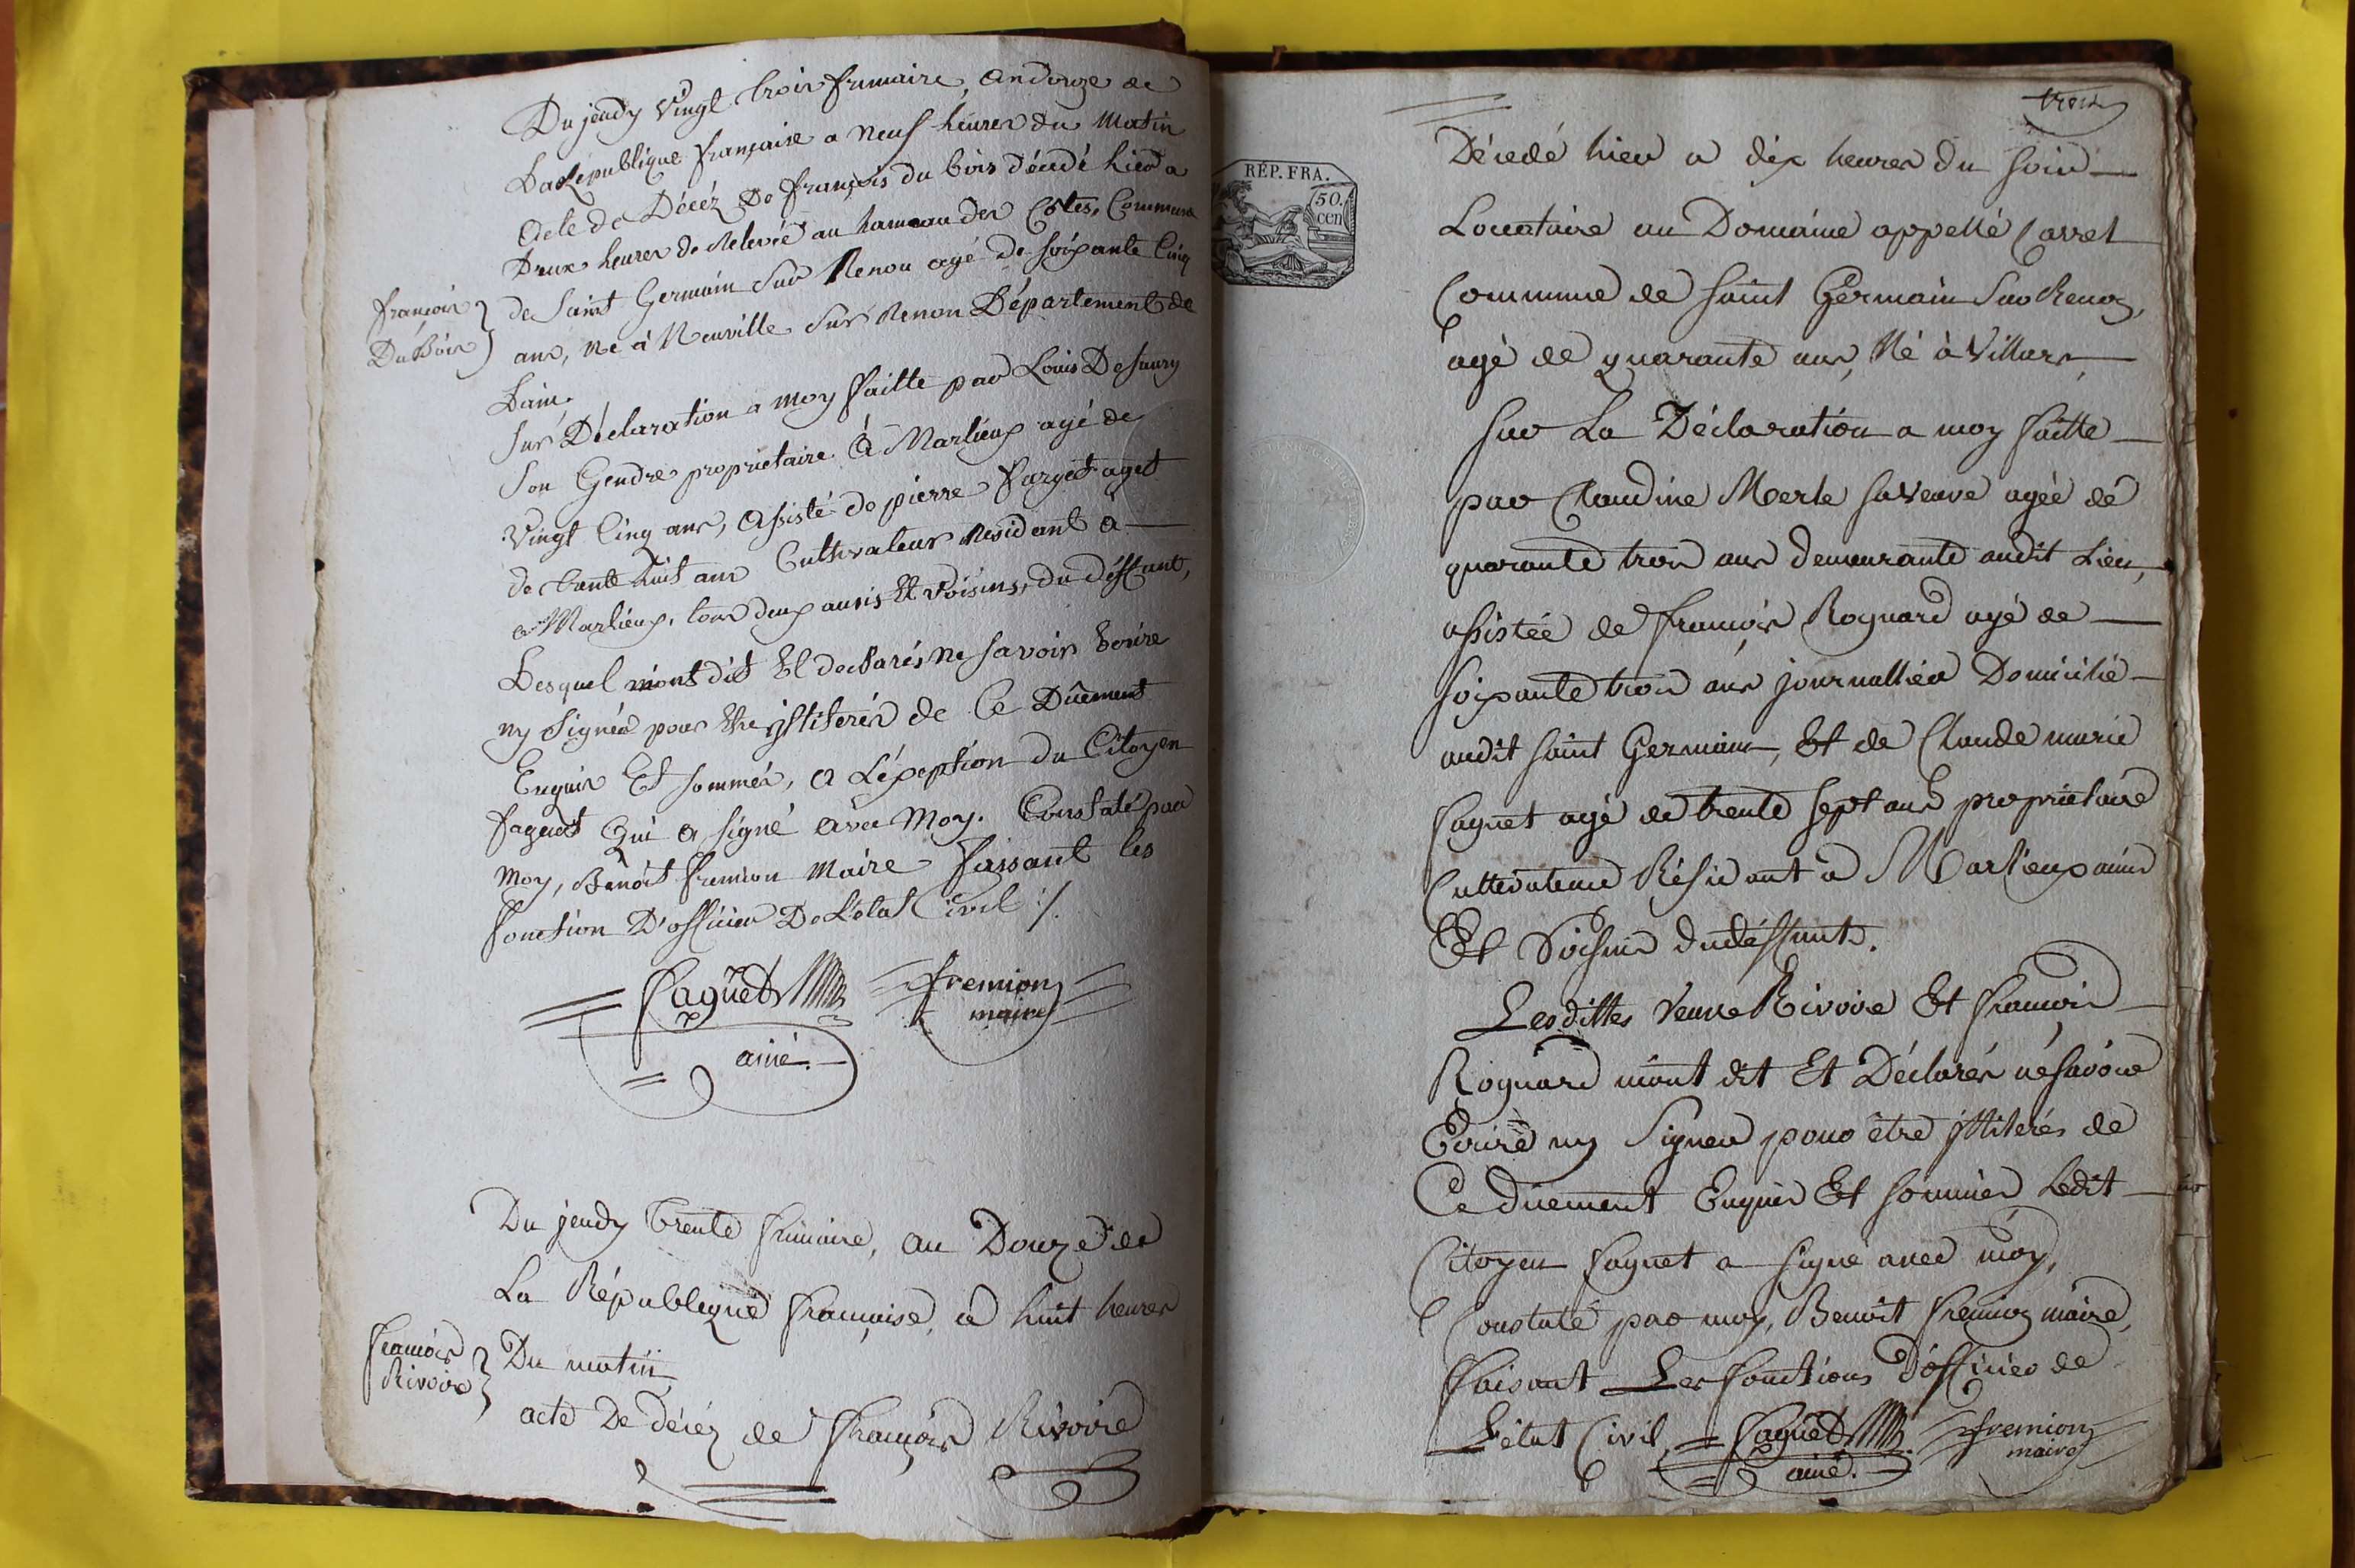 Du jeudy vingt trois frimaire, an douze de
La République française a neuf heures du matin
Acte de Décéz De françois du bois décédé hier a
Deux heures de Relevée au hameau des Côtes, Commune
de Saint Germain Sur Renon agé de soixante Cinq
ans, Né à Neuville Sur Renon Département de
Lain.
françois
DuBois
Sur Déclaration a moy faitte par Louis
Son Gendre propriétaire à Marlieux agé de
Vingt Cinq ans, Assisté de pierre
de trente huit ans Cultivateur Résidant à
a Marlieux, tous deux amis Et voisins, du déffunt,
Lesquel m'ont dit Et declarés ne savoir Ecrire
ny Signer pour être illiterés de Ce Dûement
Enquis Et sommés, a L'exeption du Citoyen
faguet Qui a signé avec Moy. Constaté par
Moy, Benoit fremion Maire faissant les
fonction D'officier De L'état Civil ./.
faguet
ainé.
fremion
maire
Du jeudy trente frimaire, an Douze de
La République française, à huit heures
Du matin
françois
Rivoire
acte De décéz de françois Rivoire
trois
RÉP. FRA.
50.
cen
Décédé hier a dix heures du soir
Locataire au Domaine appellé Carret
Commune de saint Germain Sur Renon,
agé de quarante ans, Né à Villars
Sur La Déclaration a moy faitte
par Claudine Merle sa veuve agée de
quarante trois ans demeurante audit Lieu,
assistée de françois Roguard agé de
soixante trois ans journallier Domicilié
audit saint Germain, Et de Claude marie
faguet agé de trente sept ans propriétaire
Cultivateur Résidant à Marlieux amis
Et Voisins du déffunt.
Lesdittes veuve Rivoire Et françois
Roguard m'ont dit Et Déclarés ne savoir
Ecrire ny Signer pour être illiterés de
Ce dûement Enquis Et sommés Ledit
Citoyen faguet a signé avec moy,
Constaté par moy, Benoit fremion maire,
faisant Les fonctions d'officier de
L'état Civil
faguet
ainé.
fremion
maire